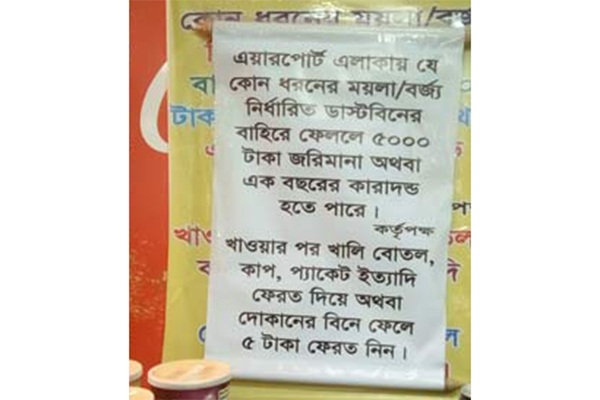 কোন ধরনের ময়লা/বর্জ্য
এয়ারপোর্ট এলাকায় যে
কোন ধরনের ময়লা/বর্জ্য
নির্ধারিত ডাস্টবিনের
বাহিরে ফেললে ৫০০০
টাকা জরিমানা অথবা
এক বছরের কারাদন্ড
হতে পারে।
কর্তৃপক্ষ
খাওয়ার পর খালি বোতল,
কাপ, প্যাকেট ইত্যাদি
ফেরত দিয়ে অথবা
দোকানের বিনে ফেলে
৫ টাকা ফেরত নিন।